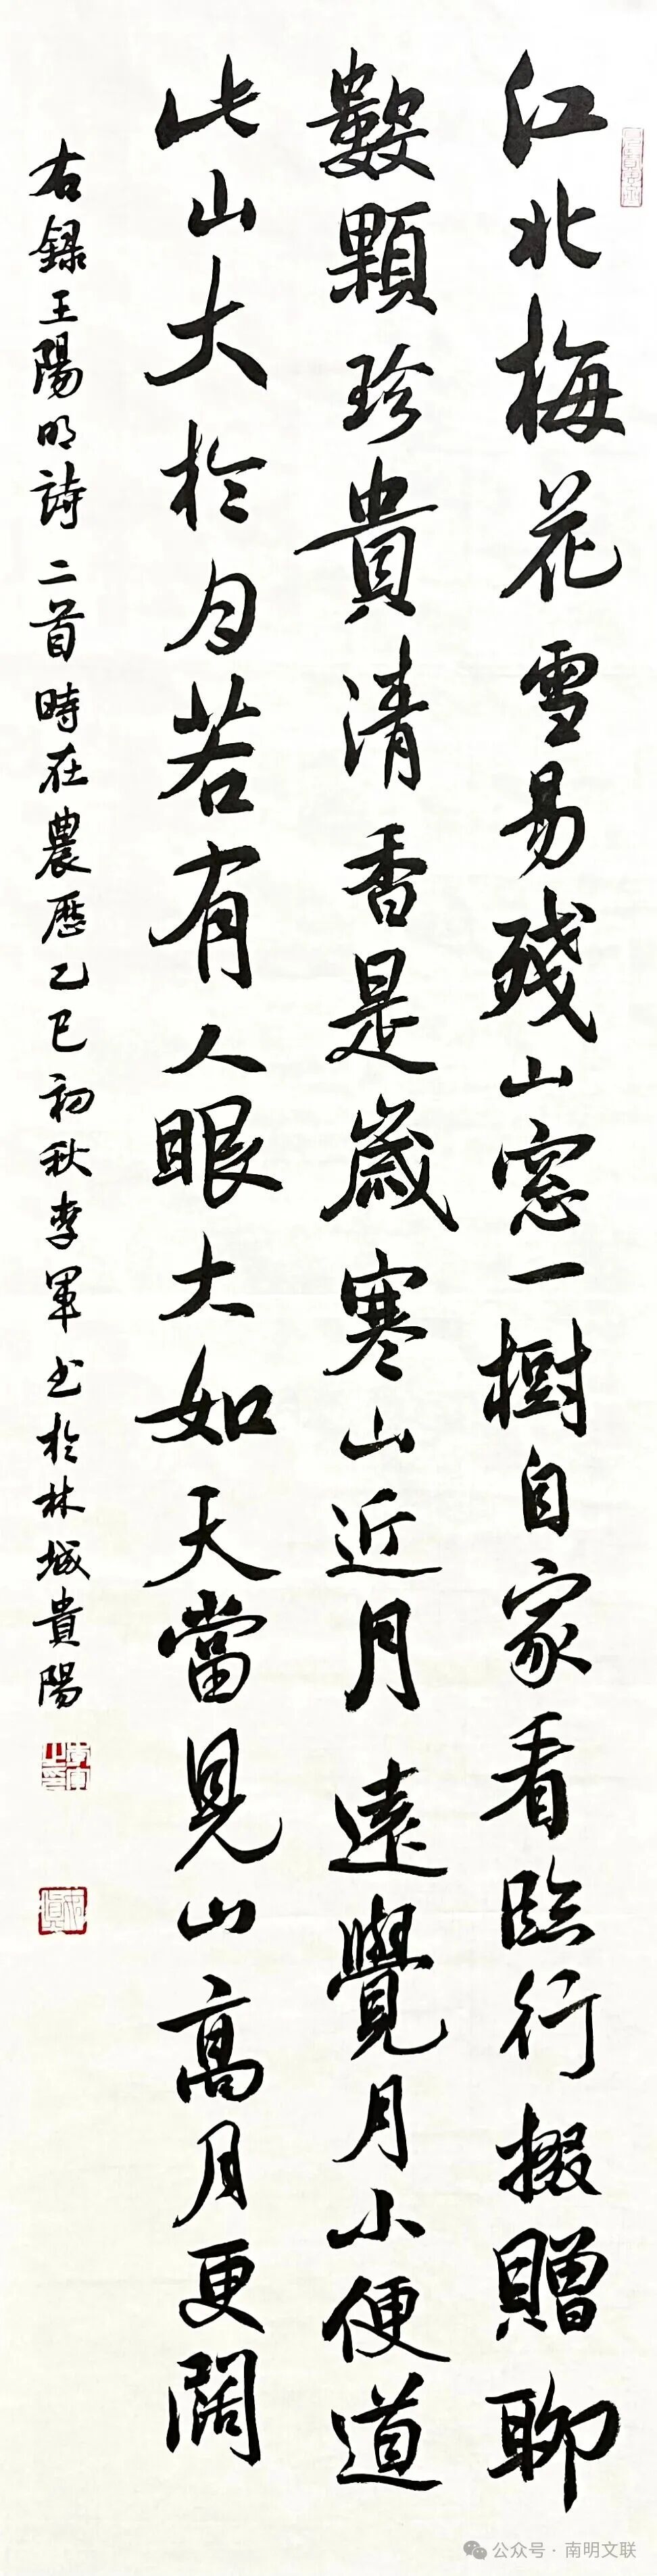 江北梅花雪易殘山窓一樹自家看臨行掇贈聊
數顆珍貴清香是歲寒山近月遠覺月小便道
此山大於月若有人眼大如天當見山高月更闊
右録王陽明詩二首時在農歷乙巳初秋李軍书於林城貴陽
公众号·南明文联